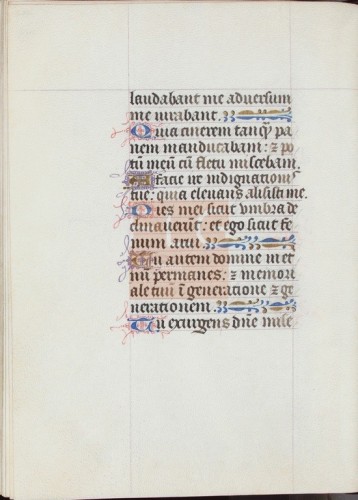 laudabant me adversum
me iurabant.
Quia cinerem tanqȝ pa
nem manducabam: ⁊ po
tū meū cū fletu miscebam.
A facie ire indignationis
tue: quia elevans alisisti me.
Dies mei sicut umbra de
clinaverūt: et ego sicut fe
num arui.
Tu autem domine in et
nū permanes: ⁊ memori
ale tuū ī generatione ⁊ ge
nerationem.
Tu exurgens dn̄e mise